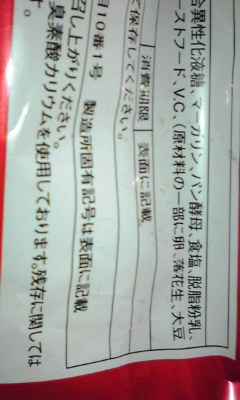 合異性化液糖、マーガリン、パン酵母、食塩、脱脂粉乳、
ーストフード、V.C、(原材料の一部に卵、落花生、大豆
消費期限 表面に記載
て保存してください。
目10番1号 製造所固有記号は表面に記載
召し上がりください。
臭素酸カリウムを使用しております。残存に関しては
す。